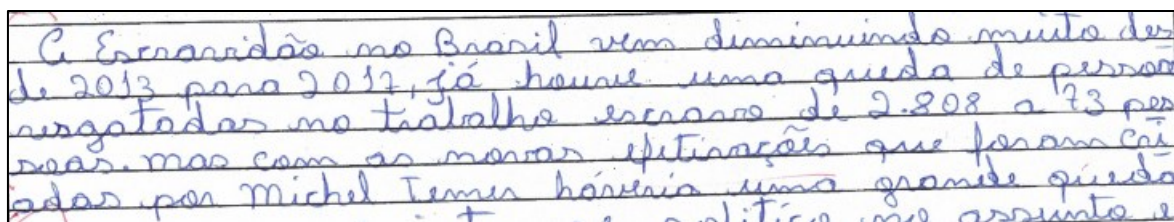 A Escravidão no Brasil vem diminuindo muito des
de 2013 para 2017, já houve uma queda de pessoas
resgatadas no trabalho escravo de 2.808 a 73 pes
soas. mas com as novas efetivações que foram cri
adas por Michel Temer haveria uma grande queda
política no assunto e